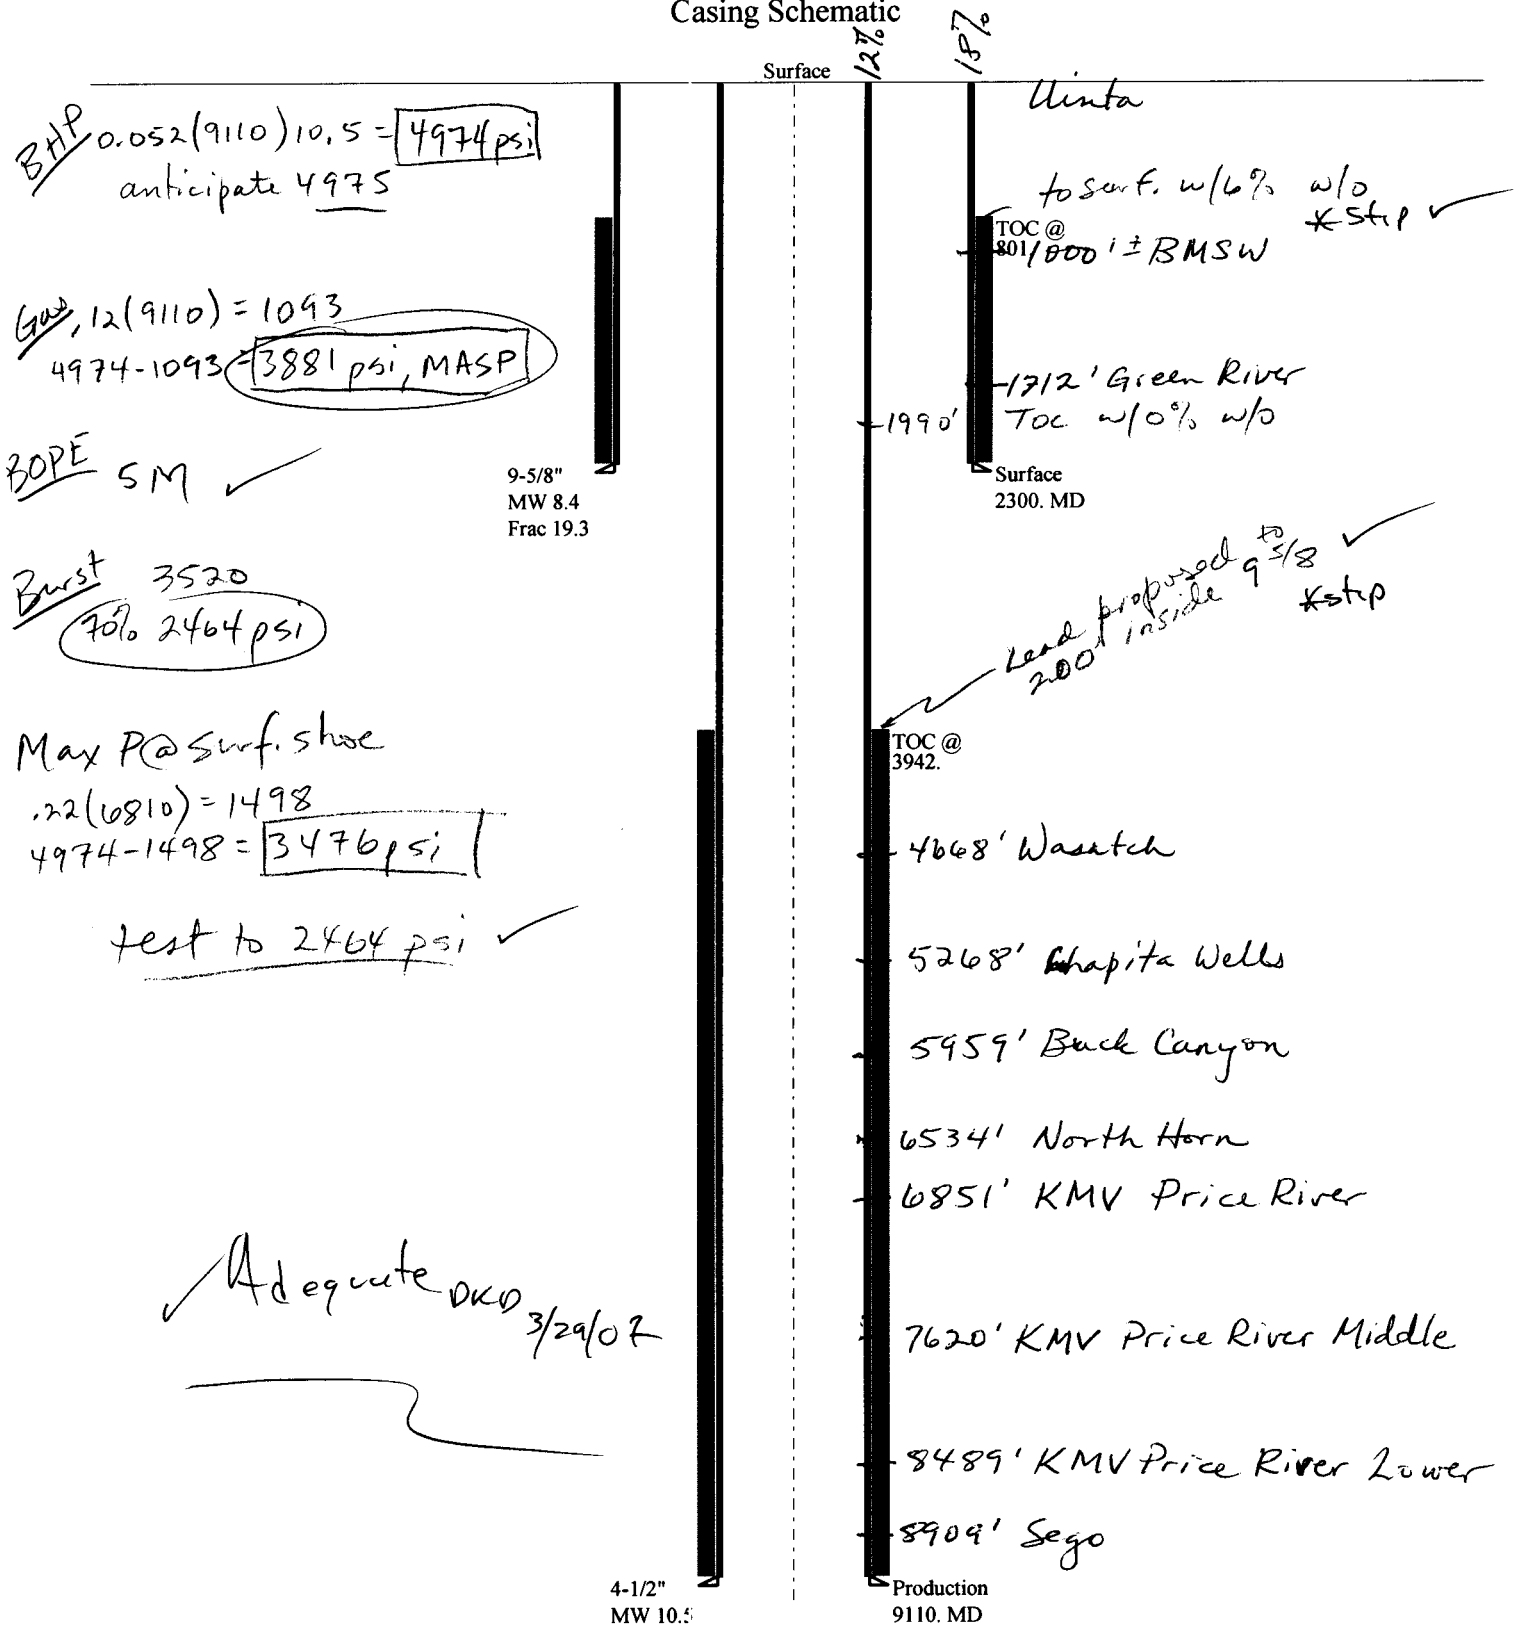 Casing Schematic
12%
18%
Surface
Uinta
BHP 0.052(9110)10.5 = 4974 psi
anticipate 4975
to surf. w/6% w/o
*Stip ✓
TOC @
801.
1000' ± BMSW
Gas .12(9110) = 1093
4974-1093 = 3881 psi, MASP
1712' Green River
1990' TOC w/0% w/o
BOPE 5M ✓
9-5/8"
MW 8.4
Frac 19.3
Surface
2300. MD
Burst 3520
70% 2464 psi
Lead proposed to
200' inside 9 5/8 ✓
*stip
Max P@ surf. shoe
.22(6810) = 1498
4974-1498 = 3476 psi
test to 2464 psi ✓
TOC @
3942.
4668' Wasatch
5268' Chapita Wells
5959' Buck Canyon
6534' North Horn
6851' KMV Price River
✓ Adequate DKD 3/29/07
7620' KMV Price River Middle
8489' KMV Price River Lower
8909' Sego
4-1/2"
MW 10.5
Production
9110. MD